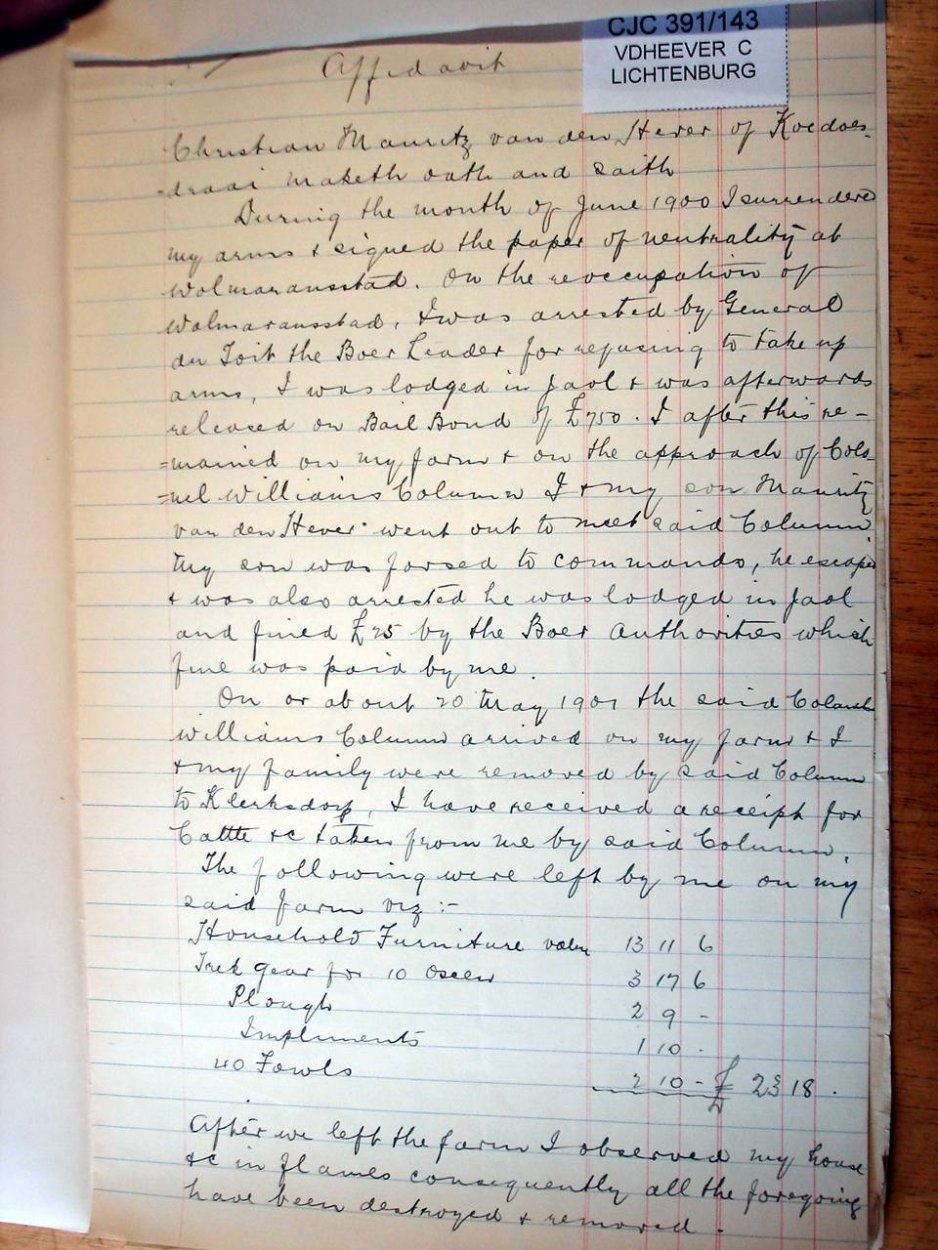 CJC 391/143
VDHEEVER C
LICHTENBURG
Affidavit
Christian Mauritz van den Hever of Koedoes-
-draai maketh oath and saith
During the month of June 1900 I surrendered
my arms & signed the paper of neutrality at
Wolmaransstad. On the reoccupation of
Wolmaransstad, I was arrested by General
du Toit the Boer Leader for refusing to take up
arms, I was lodged in Jaol & was afterwards
released on Bail Bond of £750. I after this re-
=mained on my farm & on the approach of Colo-
=nel Williams Column I & my son Mauritz
van den Hever went out to meet said Column
My son was forsed to commando, he escaped
& was also arrested he was lodged in Jaol
and fined £25 by the Boer Authorities which
fine was paid by me.
On or about 20 May 1901 the said Colonel
Williams Column arrived on my farm & I
& my family were removed by said Column
to Klerksdorp, I have received a receipt for
Cattle &c taken from me by said Column.
The following were left by me on my
said farm viz :-
Household Furniture value 13 11 6
Trek gear for 10 Oxen 3 17 6
Plough 2 9 -
Implments 1 10 -
40 Fowls 2 10 - £ 23 18 .
After we left the farm I observed my house
&c in flames consequently all the foregoing
have been destroyed & removed .